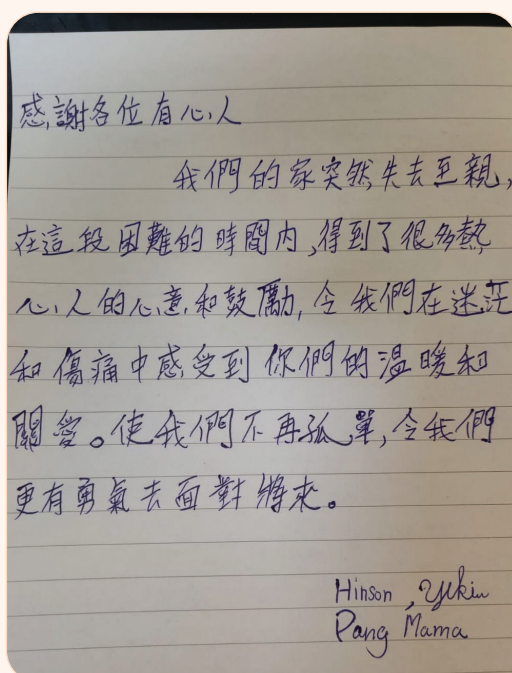 感謝各位有心人
我們的家突然失去至親,
在這段困難的時間內,得到了很多熱
心人的心意和鼓勵,令我們在迷茫
和傷痛中感受到你們的溫暖和
關愛。使我們不再孤單,令我們
更有勇氣去面對將來。
Hinson , Yukiu
Pang Mama